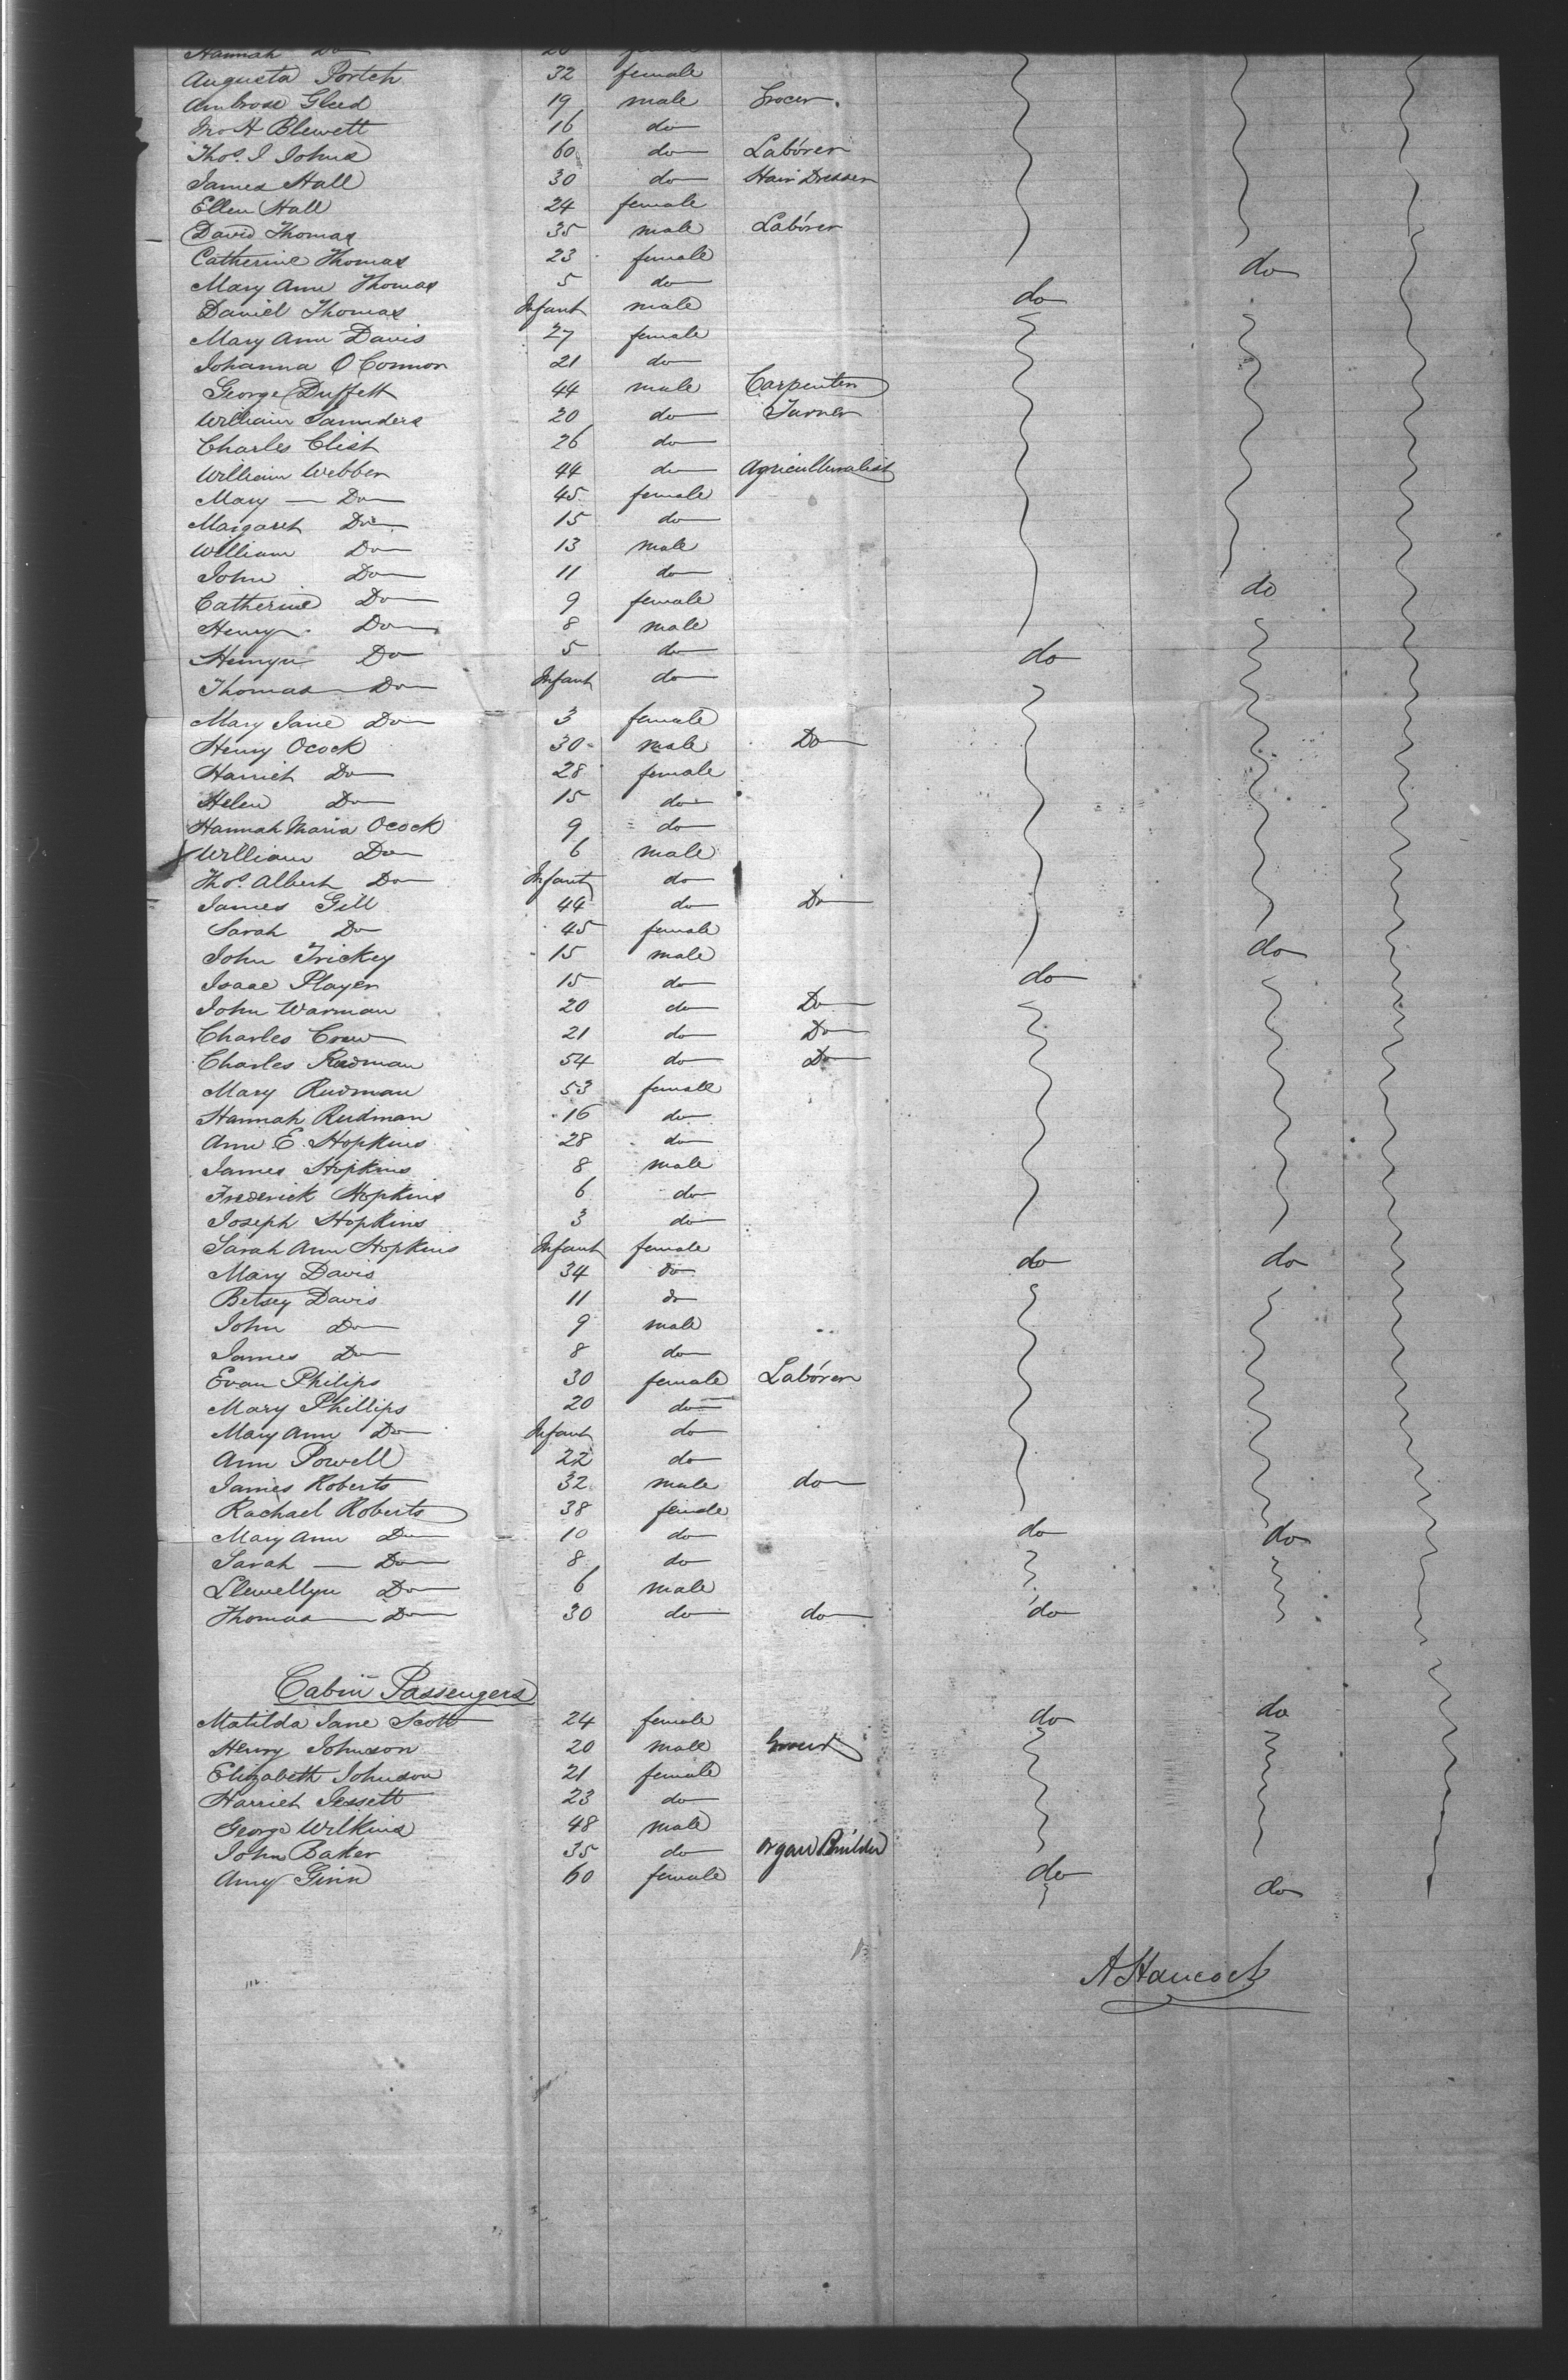 Hannah Do
Augusta Portch 32 female
Ambrose Gleed 19 male Grocer.
Jno H Blewett 16 do
Thos. J Johns 60 do Laborer
James Hall 30 do Hair Dresser
Ellen Hall 24 female
David Thomas 35 male Laborer
Catherine Thomas 23 female do
Mary Ann Thomas 5 do
Daniel Thomas Infant male do
Mary Ann Davis 27 female
Johanna O Connor 21 do
George Duffett 44 male Carpenter
William Saunders 20 do Turner
Charles Clist 26 do
William Webber 44 do Agriculturalist
Mary Do 45 female
Margaret Do 15 do
William Do 13 male
John Do 11 do
Catherine Do 9 female do
Henry Do 8 male
Do 5 do do
Thomas Do Infant do
Mary Jane Do 3 female
Henry Ocock 30 male Do
Harriet Do 28 female
Helen Do 15 do
Hannah Maria Ocock 9 do
William Do 6 male
Thos. Albert Do Infant do
James Gill 44 do Do
Sarah Do 45 female
John Trickey 15 male do
Isaac Player 15 do do
John Warman 20 do Do
Charles Crew 21 do Do
Charles Rudman 54 do Do
Mary Rudman 53 female
Hannah Rudman 16 do
Ann E. Hopkins 28 do
James Hopkins 8 male
Frederick Hopkins 6 do
Joseph Hopkins 3 do
Sarah Ann Hopkins Infant female do do
Mary Davis 34 do
Betsey Davis 11 do
John Do 9 male
James Do 8 do
Evan Philips 30 female Laborer
Mary Phillips 20 do
Mary Ann Do Infant do
Ann Powell 22 do
James Roberts 32 male do
Rachael Roberts 38 female
Mary Ann Do 10 do do do
Sarah Do 8 do
Llewellyn Do 6 male
Thomas Do 30 do do do
Cabin Passengers
Matilda Jane Scott 24 female do do
Henry Johnson 20 male
Elizabeth Johnson 21 female
Harriet Jessett 23 do
George Wilkins 48 male
John Baker 35 do Organ Builder
Amy Ginn 60 female do do
A Hancock